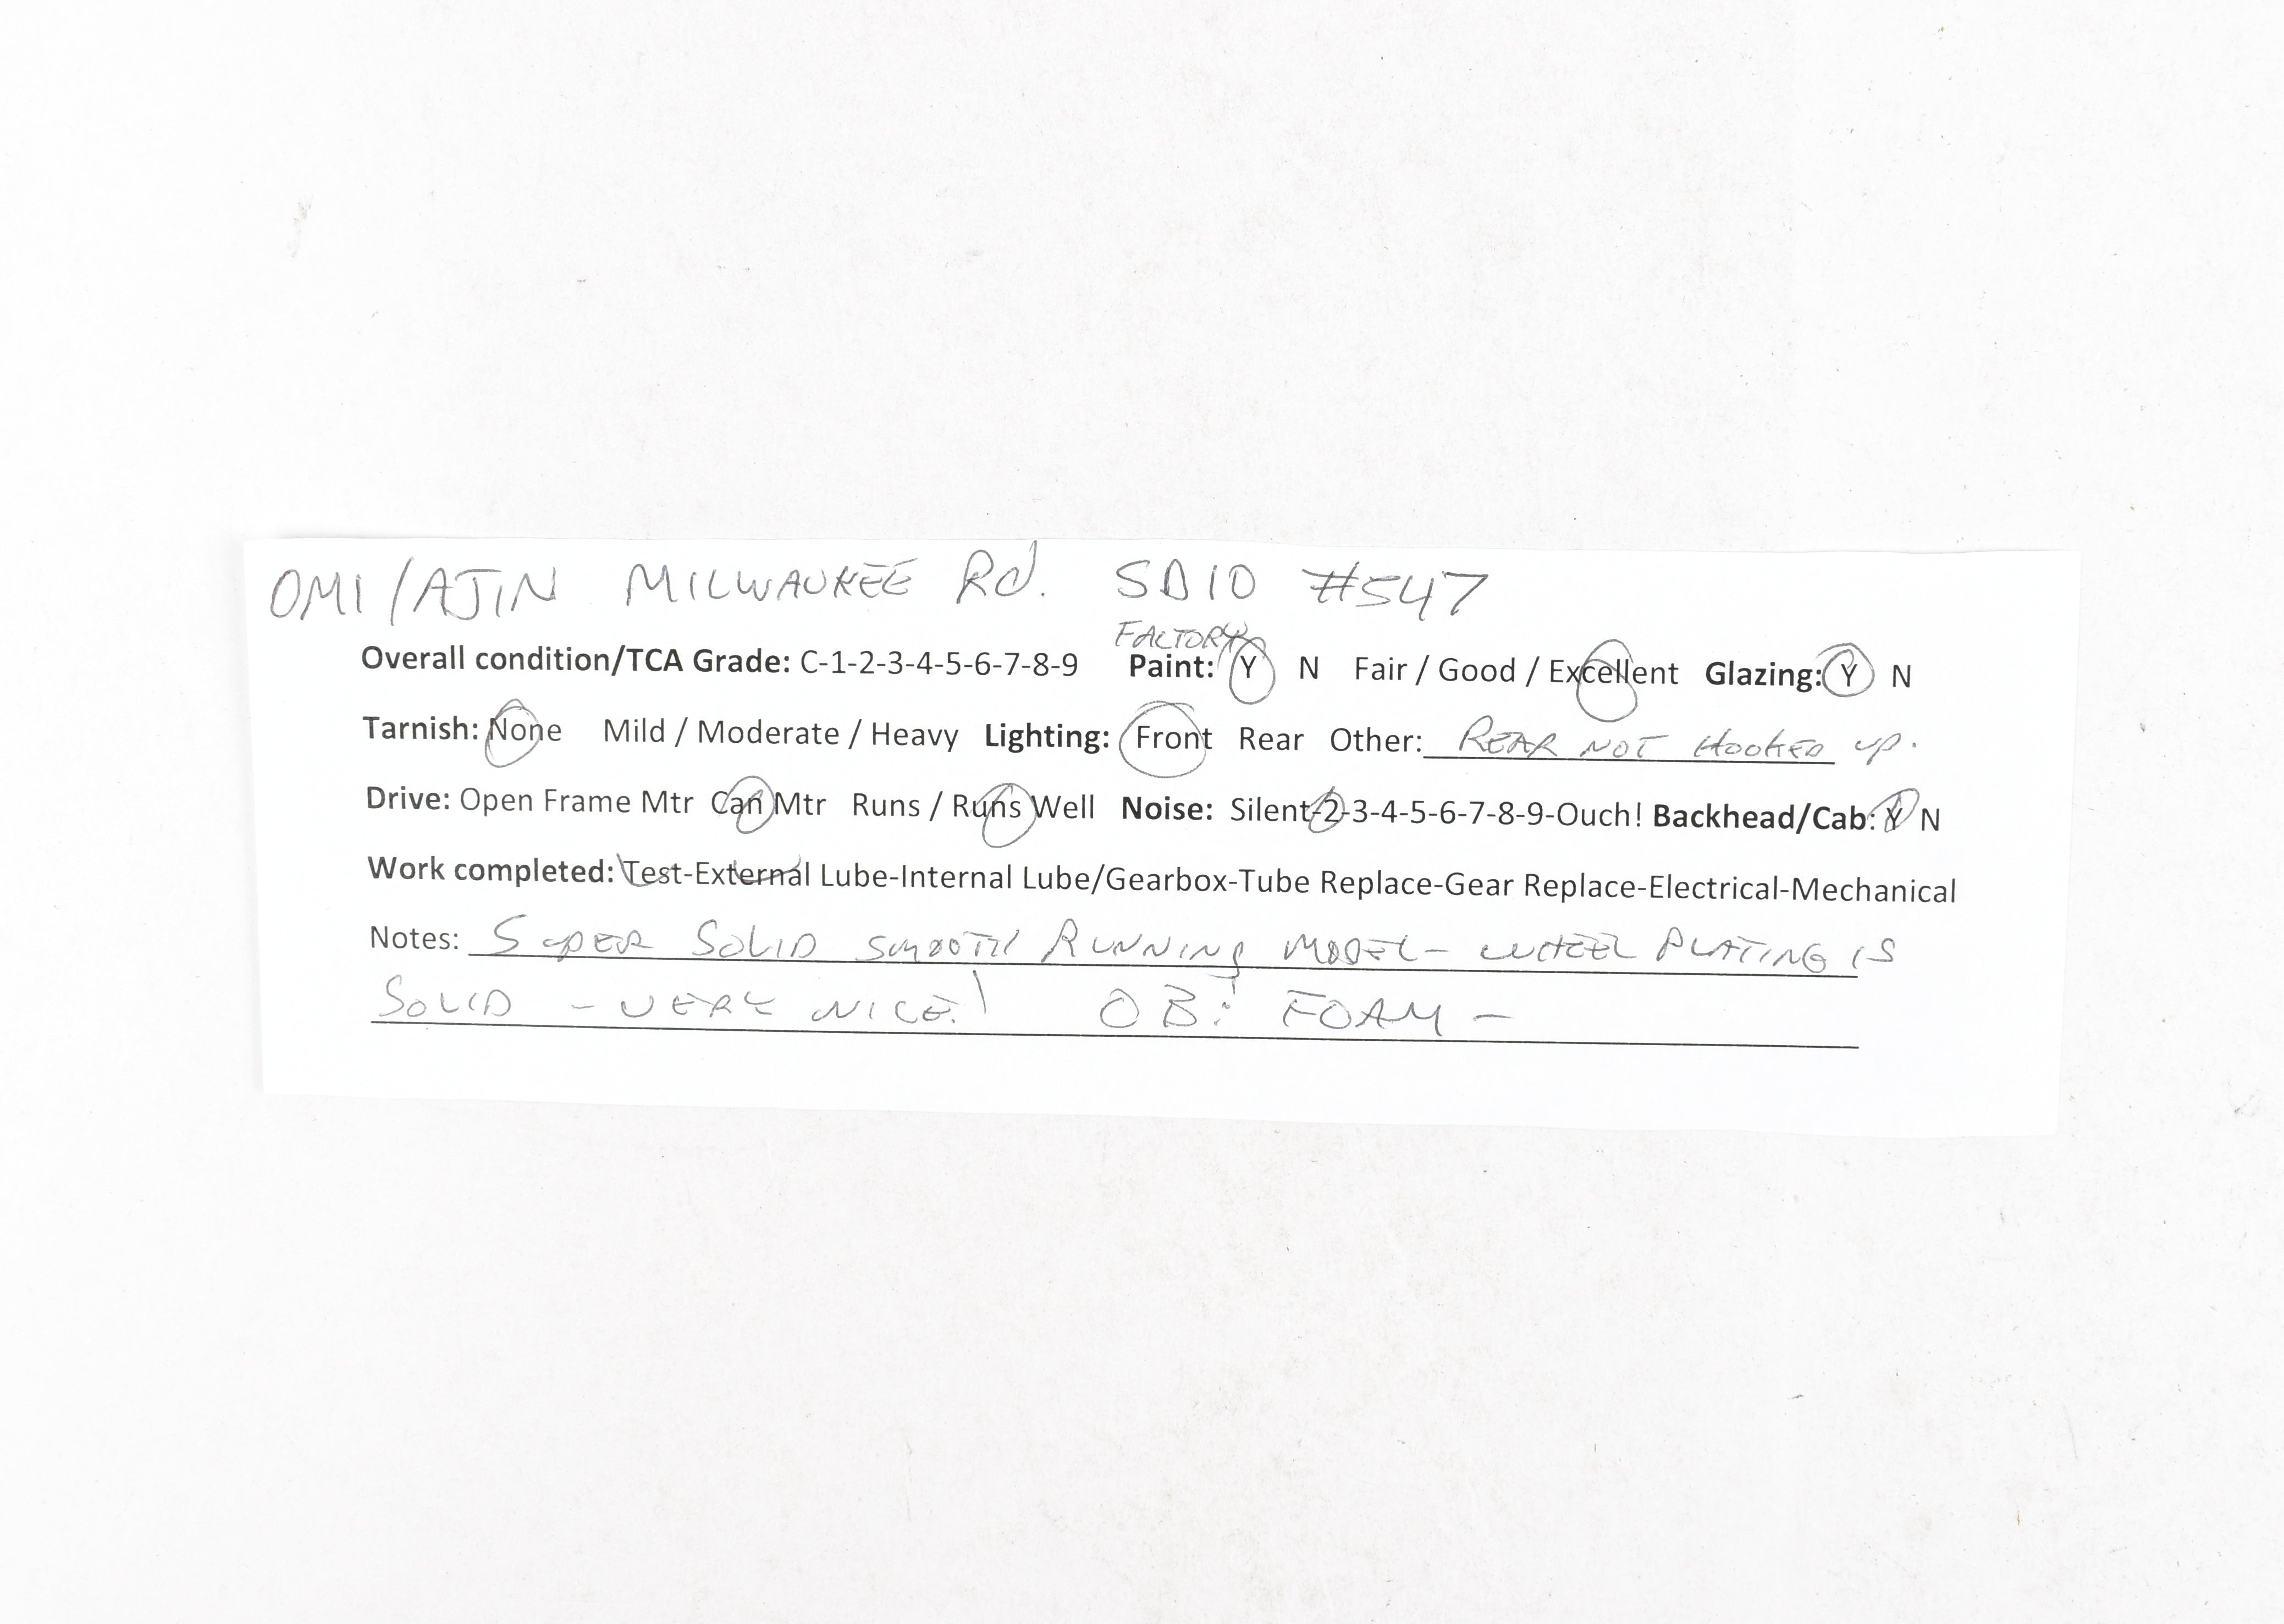 OMI/AJIN MILWAUKEE Rd. SD10 #547
FACTORY
Overall condition/TCA Grade: C-1-2-3-4-5-6-7-8-9 Paint: Y N Fair / Good / Excellent Glazing: Y N
Tarnish: None Mild / Moderate / Heavy Lighting: Front Rear Other: REAR NOT HOOKED UP.
Drive: Open Frame Mtr Can Mtr Runs / Runs Well Noise: Silent-2-3-4-5-6-7-8-9-Ouch! Backhead/Cab: Y N
Work completed: Test-External Lube-Internal Lube/Gearbox-Tube Replace-Gear Replace-Electrical-Mechanical
Notes: SUPER SOLID SMOOTH RUNNING MODEL - WHEEL PLATING IS
SOLID - VERY NICE! OB: FOAM -